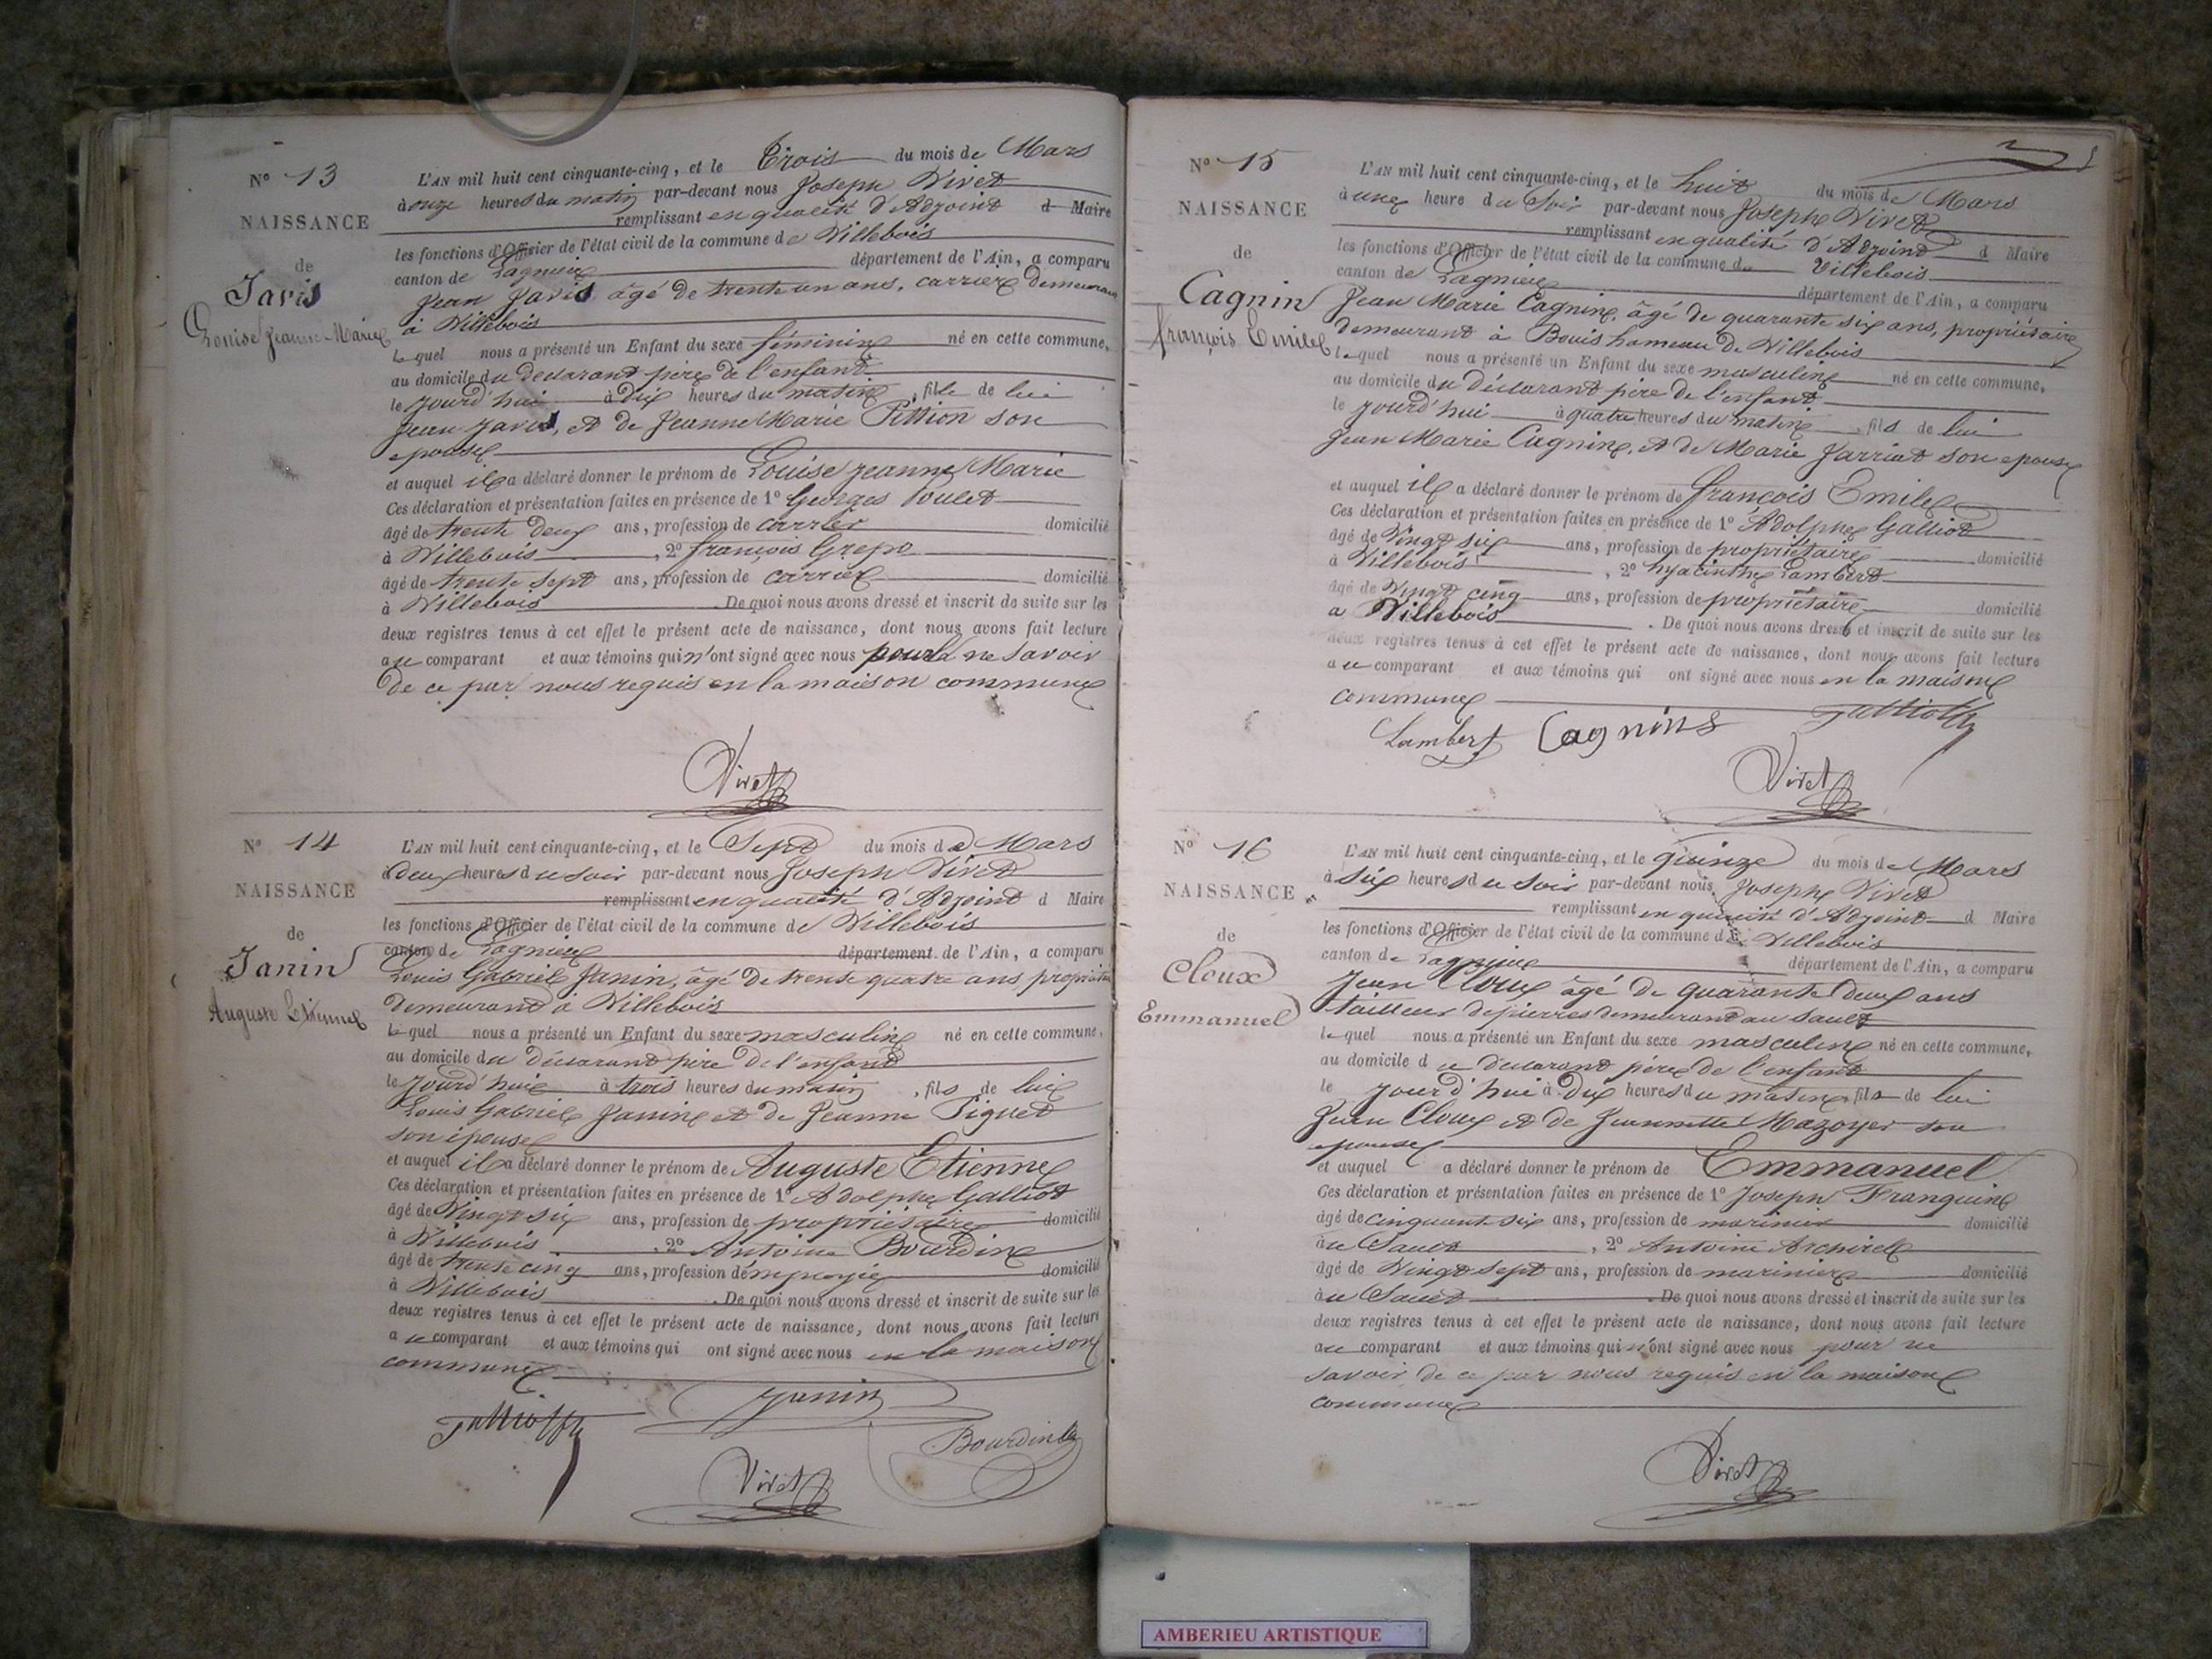 N° 13
NAISSANCE
de
Javis
Louise Jeanne Marie
L'AN mil huit cent cinquante-cinq, et le Trois du mois de Mars
à onze heures du matin par-devant nous Joseph Vivet
remplissant en qualité d'Adjoint d Maire
les fonctions d'Officier de l'état civil de la commune de Villebois
canton de Lagnieu département de l'Ain, a comparu
Jean Javis âgé de trente un ans, carrier demeurant
à Villebois
lequel nous a présenté un Enfant du sexe féminin né en cette commune,
au domicile du déclarant père de l'enfant
le jourd'hui à dix heures du matin, fille de lui
Jean Javis, et de Jeanne Marie Pittion son
epouse
et auquel il a déclaré donner le prénom de Louise jeanne Marie
Ces déclaration et présentation faites en présence de 1° Georges Poulet
âgé de trente deux ans, profession de carrier domicilié
à Villebois, 2° françois Grepo
âgé de trente sept ans, profession de carrier domicilié
à Villebois. De quoi nous avons dressé et inscrit de suite sur les
deux registres tenus à cet effet le présent acte de naissance, dont nous avons fait lecture
au comparant et aux témoins qui n'ont signé avec nous pour ne savoir
de ce par nous requis en la maison commune
Vivet
N° 14
NAISSANCE
de
Janin
Auguste Etienne
L'AN mil huit cent cinquante-cinq, et le Sept du mois de Mars
à deux heures du soir par-devant nous Joseph Vivet
remplissant en qualité d'Adjoint d Maire
les fonctions d'Officier de l'état civil de la commune de Villebois
canton de Lagnieu département de l'Ain, a comparu
Louis Gabriel Janin, âgé de trente quatre ans propriétaire
demeurant à Villebois
lequel nous a présenté un Enfant du sexe masculin né en cette commune,
au domicile du déclarant père de l'enfant
le jourd'hui à trois heures du matin, fils de lui
Louis Gabriel Janin et de Jeanne Piguet
son épouse
et auquel il a déclaré donner le prénom de Auguste Etienne
Ces déclaration et présentation faites en présence de 1° Adolphe Galliot
âgé de Vingt six ans, profession de propriétaire domicilié
à Villebois, 2° Antoine Bourdin
âgé de trente cinq ans, profession d'employé domicilié
à Villebois. De quoi nous avons dressé et inscrit de suite sur les
deux registres tenus à cet effet le présent acte de naissance, dont nous avons fait lecture
au comparant et aux témoins qui ont signé avec nous en la maison
commune
Janin
Bourdin
Vivet
N° 15
NAISSANCE
de
Cagnin
françois Emile
L'AN mil huit cent cinquante-cinq, et le huit du mois de Mars
à une heure du Soir par-devant nous Joseph Vivet
remplissant en qualité d'Adjoint d Maire
les fonctions d'Officier de l'état civil de la commune de Villebois
canton de Lagnieu département de l'Ain, a comparu
Jean Marie Cagnin, âgé de quarante six ans, propriétaire
demeurant à Bouis hameau de Villebois
lequel nous a présenté un Enfant du sexe masculin né en cette commune,
au domicile du déclarant père de l'enfant
le jourd'hui à quatre heures du matin, fils de lui
Jean Marie Cagnin, et de Marie Jarriat son epouse
et auquel il a déclaré donner le prénom de françois Emile
Ces déclaration et présentation faites en présence de 1° Adolphe Galliot
âgé de Vingt six ans, profession de propriétaire domicilié
à Villebois, 2° hyacinthe Lambert
âgé de Vingt cinq ans, profession de propriétaire domicilié
a Villebois. De quoi nous avons dressé et inscrit de suite sur les
deux registres tenus à cet effet le présent acte de naissance, dont nous avons fait lecture
au comparant et aux témoins qui ont signé avec nous en la maison
commune
Lambert Cagnin
Vivet
N° 16
NAISSANCE
de
Cloux
Emmanuel
L'AN mil huit cent cinquante-cinq, et le quinze du mois de Mars
à six heures du soir par-devant nous Joseph Vivet
remplissant en qualité d'Adjoint d Maire
les fonctions d'Officier de l'état civil de la commune de Villebois
canton de Lagnieu département de l'Ain, a comparu
Jean Cloux âgé de quarante deux ans
tailleur de pierres demeurant au Sault
lequel nous a présenté un Enfant du sexe masculin né en cette commune,
au domicile du déclarant père de l'enfant
le jourd'hui à dix heures du matin, fils de lui
Jean Cloux et de Jeannette Mazoyer son
epouse
et auquel a déclaré donner le prénom de Emmanuel
Ces déclaration et présentation faites en présence de 1° Joseph Franquin
âgé de cinquante six ans, profession de marinier domicilié
au Sault, 2° Antoine
âgé de Vingt sept ans, profession de marinier domicilié
au Sault. De quoi nous avons dressé et inscrit de suite sur les
deux registres tenus à cet effet le présent acte de naissance, dont nous avons fait lecture
au comparant et aux témoins qui n'ont signé avec nous pour ne
savoir de ce par nous requis en la maison
commune
Vivet
AMBERIEU ARTISTIQUE